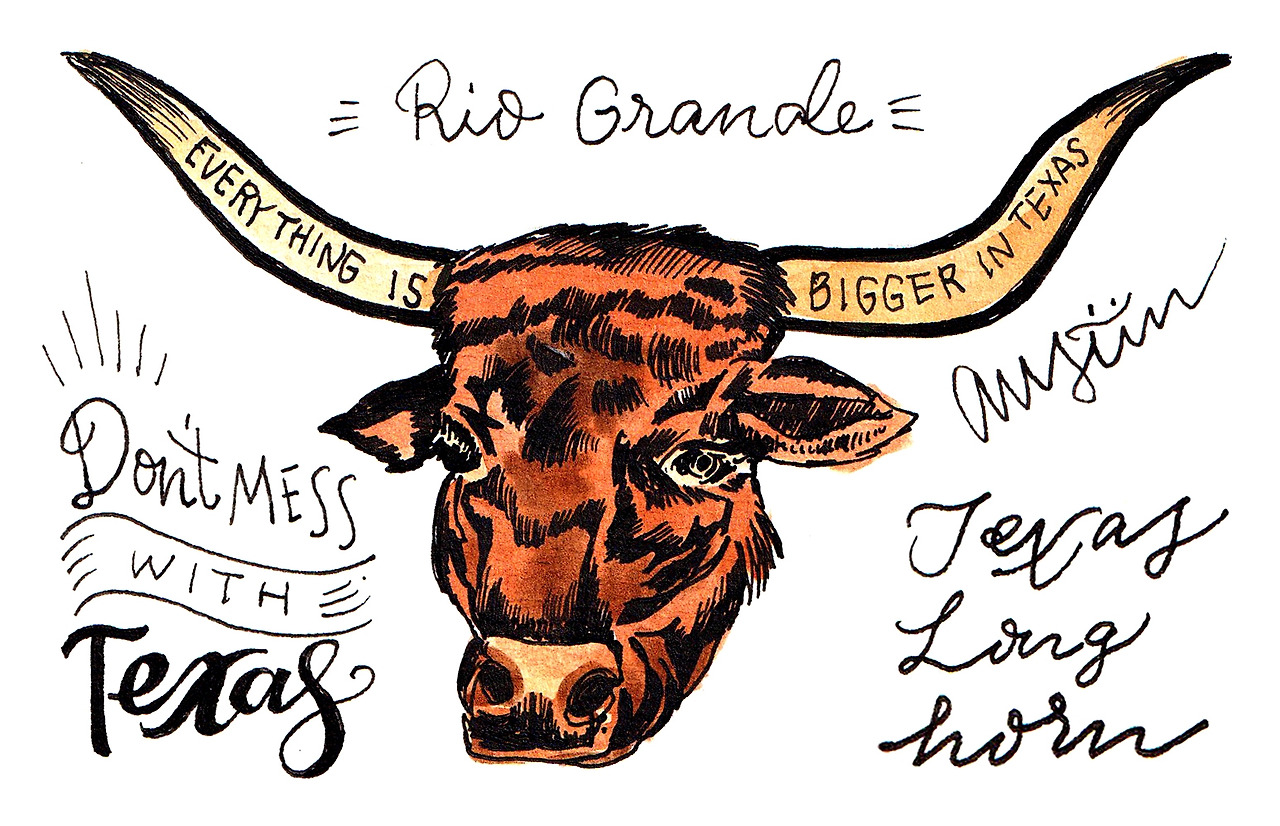 Rio Grande
EVERYTHING IS
BIGGER IN TEXAS
Austin
Don't MESS
WITH
Texas
Texas
Long
horn